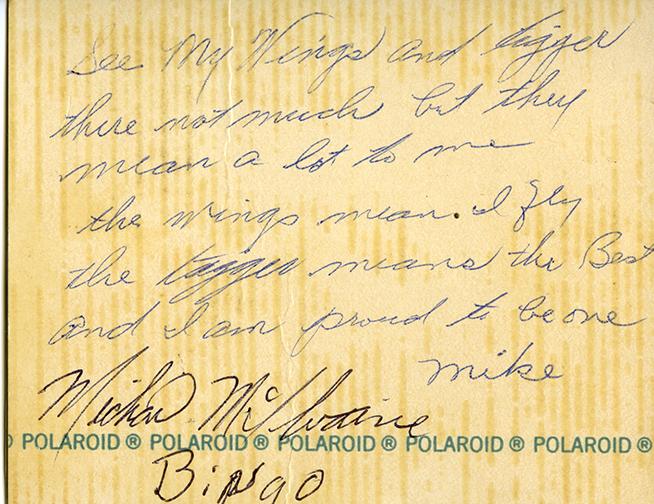 See My Wings and tigger
there not much but they
mean a lot to me
the wings mean. I fly
the tigger means the Best
and I am proud to be one
Mike
Michael
POLAROID ® POLAROID ® POLAROID ® POLAROID ® POLAROID ®